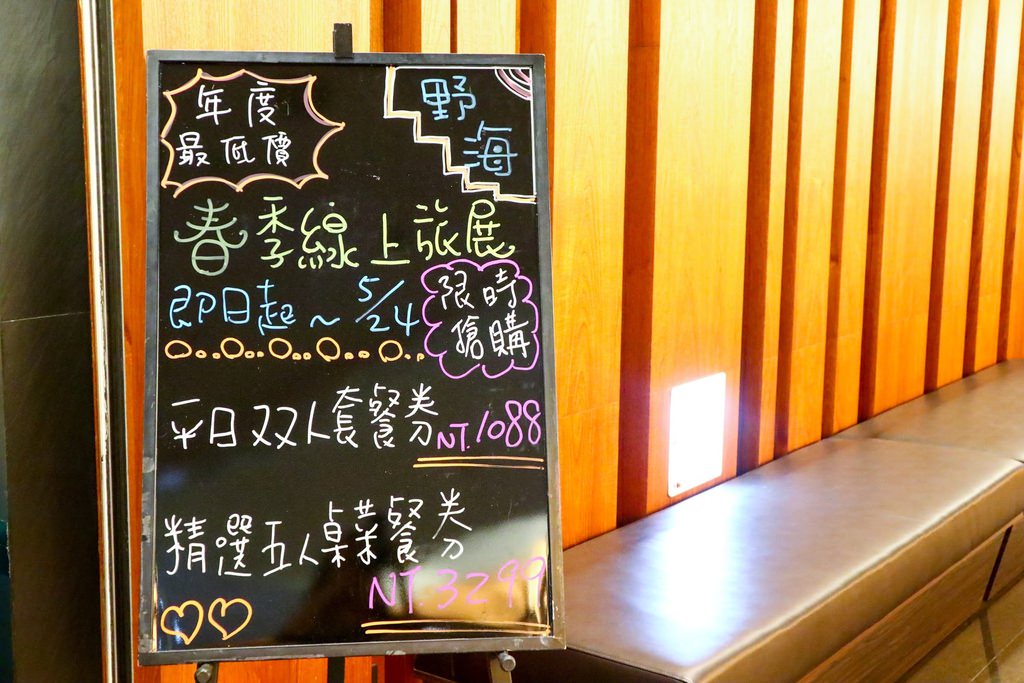 年度
最低價
野
海
春季線上旅展
即日起~5/24
限時
搶購
平日双人套餐券
NT.1088
精選五人桌菜餐券
NT.3299